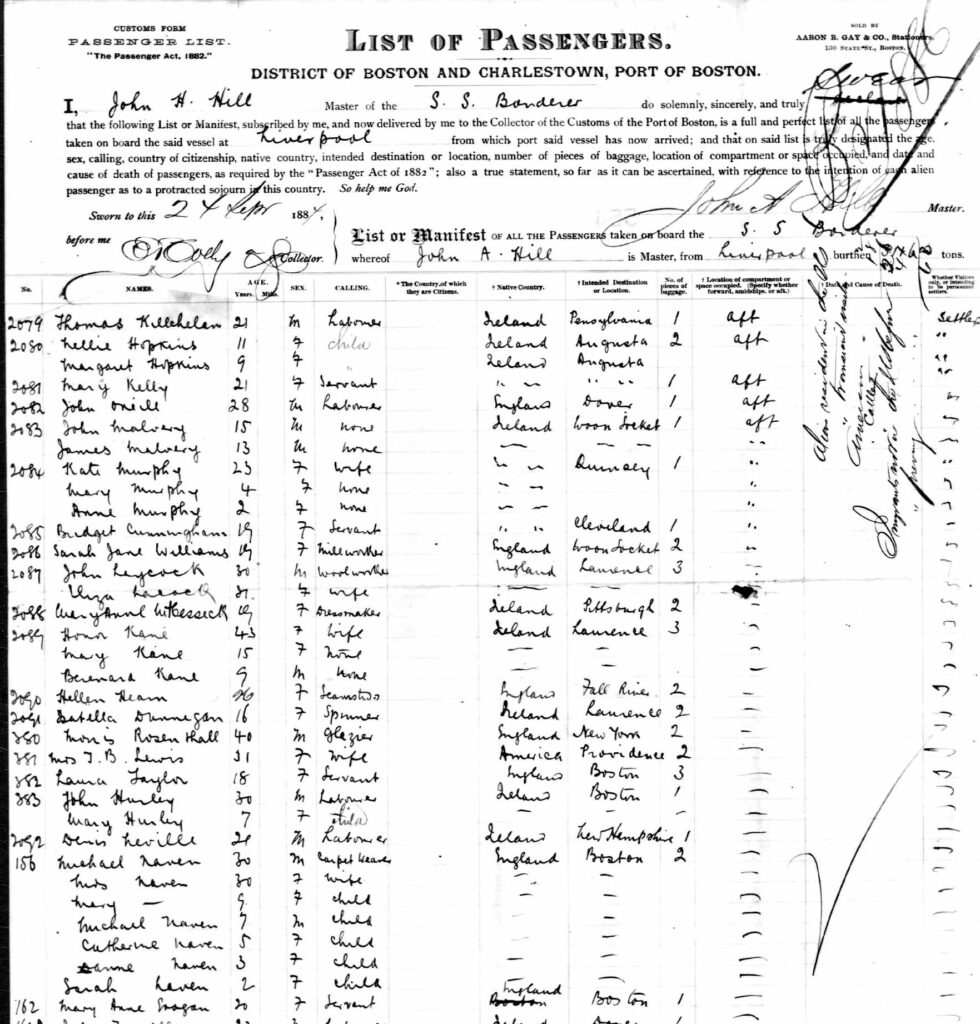 CUSTOMS FORM
PASSENGER LIST.
"The Passenger Act, 1882."
LIST OF PASSENGERS.
SOLD BY
AARON R. GAY & CO., Stationers,
130 STATE ST., BOSTON.
DISTRICT OF BOSTON AND CHARLESTOWN, PORT OF BOSTON.
I, John H. Hill Master of the S. S. Borderer do solemnly, sincerely, and truly
that the following List or Manifest, subscribed by me, and now delivered by me to the Collector of the Customs of the Port of Boston, is a full and perfect list of all the passengers
taken on board the said vessel at Liverpool from which port said vessel has now arrived; and that on said list is truly designated the age,
sex, calling, country of citizenship, native country, intended destination or location, number of pieces of baggage, location of compartment or space occupied, and date and
cause of death of passengers, as required by the "Passenger Act of 1882"; also a true statement, so far as it can be ascertained, with reference to the intention of each alien
passenger as to a protracted sojourn in this country. So help me God.
Sworn to this 24 Sepr 1884, John A Hill Master.
before me Collector.
List or Manifest OF ALL THE PASSENGERS taken on board the S. S Borderer
whereof John A. Hill is Master, from Liverpool burthen tons.
No. NAMES. AGE. Years. Mths. SEX. CALLING. * The Country of which they are Citizens. † Native Country. † Intended Destination or Location. No. of pieces of baggage. † Location of compartment or space occupied. (Specify whether forward, amidships, or aft.) † Date and Cause of Death. Whether Visitors only, or intending to be permanent settlers.
2079 Thomas Killehelan 21 M Labourer Ireland Pensylvania 1 aft Settler
2080 Nellie Hopkins 11 F child Ireland Augusta 2 aft
Margaret Hopkins 9 F " Ireland Augusta
2081 Mary Kelly 21 F Servant " " " " 1 aft
2082 John Oneill 28 M Labourer England Dover 1 aft
2083 John Malvery 15 M none Ireland Woon Socket 1 aft
James Malvery 13 M none — — "
2084 Kate Murphy 23 F wife " " Quincey 1 "
Mary Murphy 4 F none — — "
Anne Murphy 2 F none — — "
2085 Bridget Cunningham 19 F Servant " " Cleveland 1 "
2086 Sarah Jane Williams 19 F Millworker England Woon Socket 2 "
2087 John Leycock 30 M Woolworker England Laurence 3
Eliza Lacock 31 F wife — —
2088 Mary Anne McCessick 19 F Dressmaker Ireland Pittsburgh 2
2089 Honor Kane 43 F Wife Ireland Laurence 3
Mary Kane 15 F none — —
Berenard Kane 9 M none — —
2090 Hellen Hearn 26 F Seamstrss England Fall River 2
2091 Isabella Dunnegan 16 F Spinner Ireland Laurence 2
380 Morris Rosenthall 40 M Glazier England New York 2
381 Mrs J. B. Lewis 31 F Wife America Providence 2
382 Laura Taylor 18 F Servant England Boston 3
383 John Hurley 30 M Labourer Ireland Boston 1
Mary Hurley 7 F child — —
2092 Denis Neville 21 M Labourer Ireland New Hempshire 1
156 Michael Naven 30 M Carpet Weaver England Boston 2
Mrs Naven 30 F wife — —
Mary — 9 F child — —
Michael Naven 7 M child — —
Catherine Naven 5 F child — —
Anne Naven 3 F child — —
Sarah Naven 2 F child — —
162 Mary Anne Grogan 20 F Servant England Boston 1